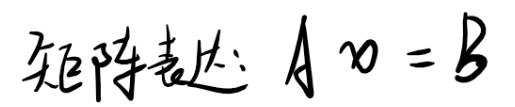 矩阵表达: A x = B